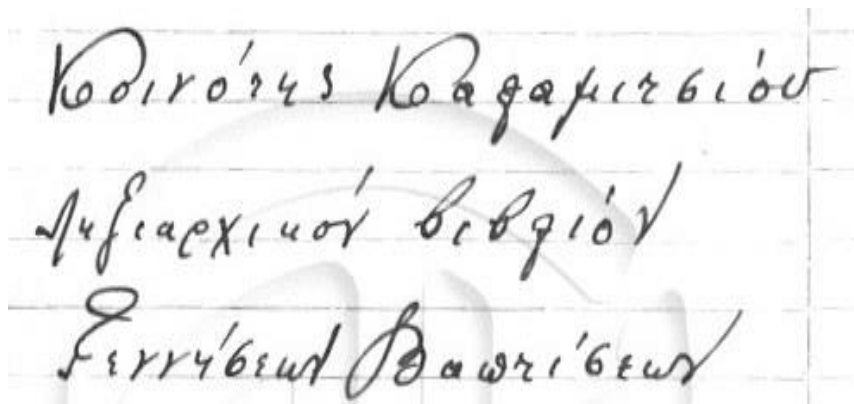 Κοινότης Καλαμιτσίου
Ληξιαρχικόν βιβλίόν
Γεννήσεων Βαπτίσεων